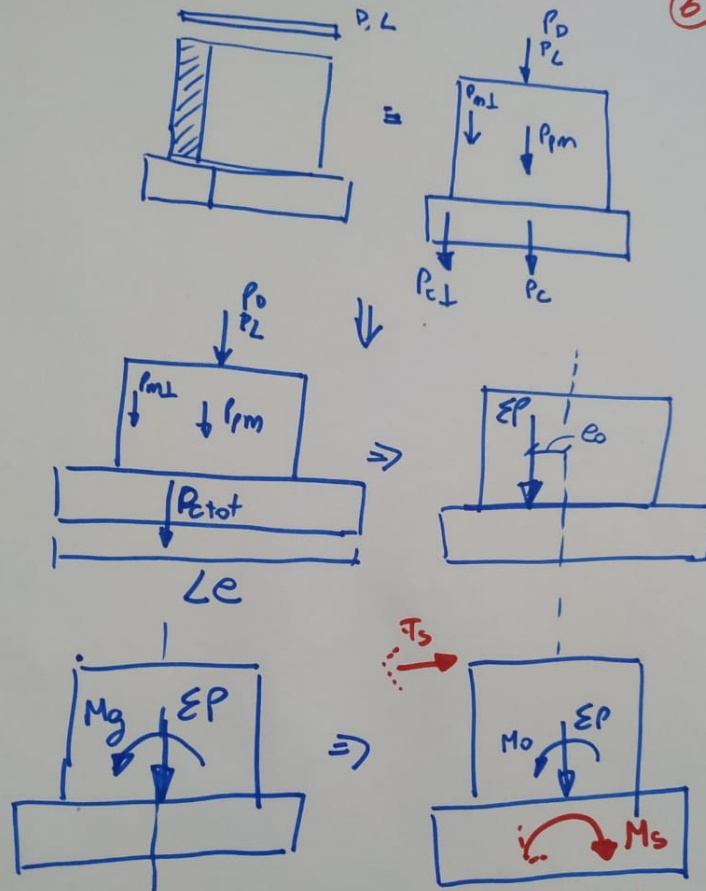 6
D, L
=
PD
PL
Pm⊥
Ppm
Pc⊥
Pc
PD
PL
⇓
Pm⊥
Ppm
Pctot
Le
⇒
ΣP
e0
Mg
ΣP
⇒
Ts
Mo
ΣP
Ms